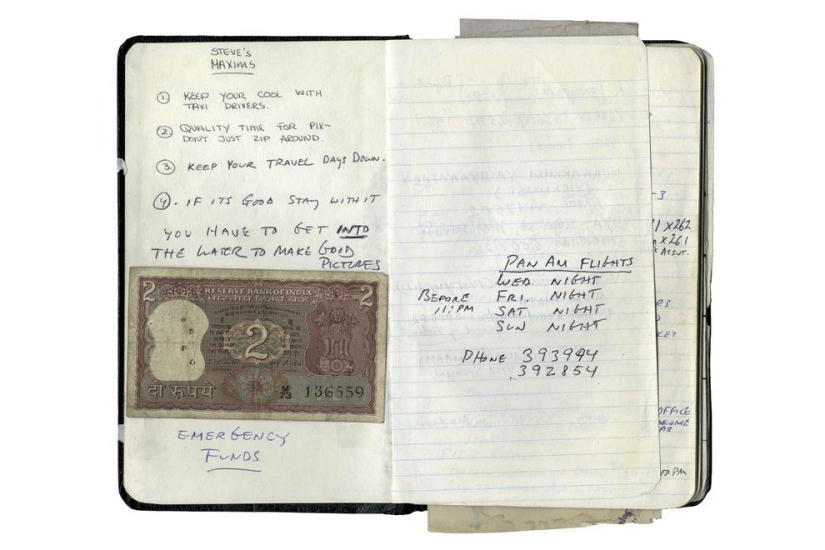 STEVE'S
MAXIMS
1. KEEP YOUR COOL WITH
TAXI DRIVERS.
2. QUALITY TIME FOR PIX-
DON'T JUST ZIP AROUND.
3. KEEP YOUR TRAVEL DAYS DOWN.
4. IF ITS GOOD STAY WITH IT
YOU HAVE TO GET INTO
THE WATER TO MAKE GOOD
PICTURES
2 RESERVE BANK OF INDIA 2
2
दो रुपये
M/73 136559
EMERGENCY
FUNDS
PAN AM FLIGHTS
WED NIGHT
BEFORE FRI. NIGHT
11:PM SAT NIGHT
SUN NIGHT
PHONE 393944
392854
-3
1 X262
X261
OFFICE
PM